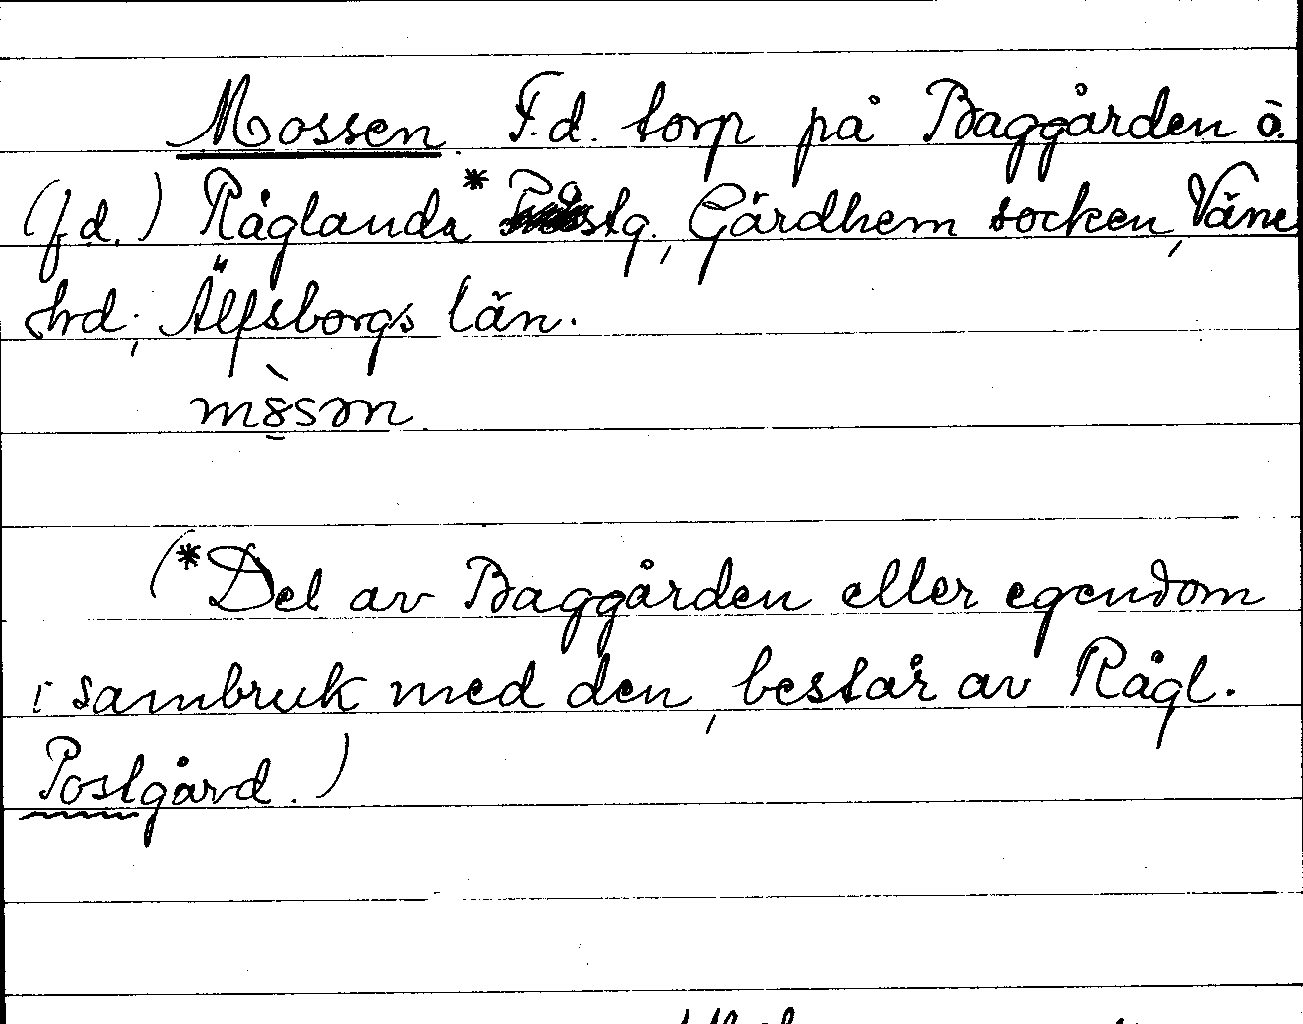 Mossen. F.d. torp på Baggården o.
(f.d.) Råglanda* stg., Gärdhem socken, Väne
hrd; Älfsborgs län.
mòsən.
(*Del av Baggården eller egendom
i sambruk med den, består av Rågl.
Postgård.)